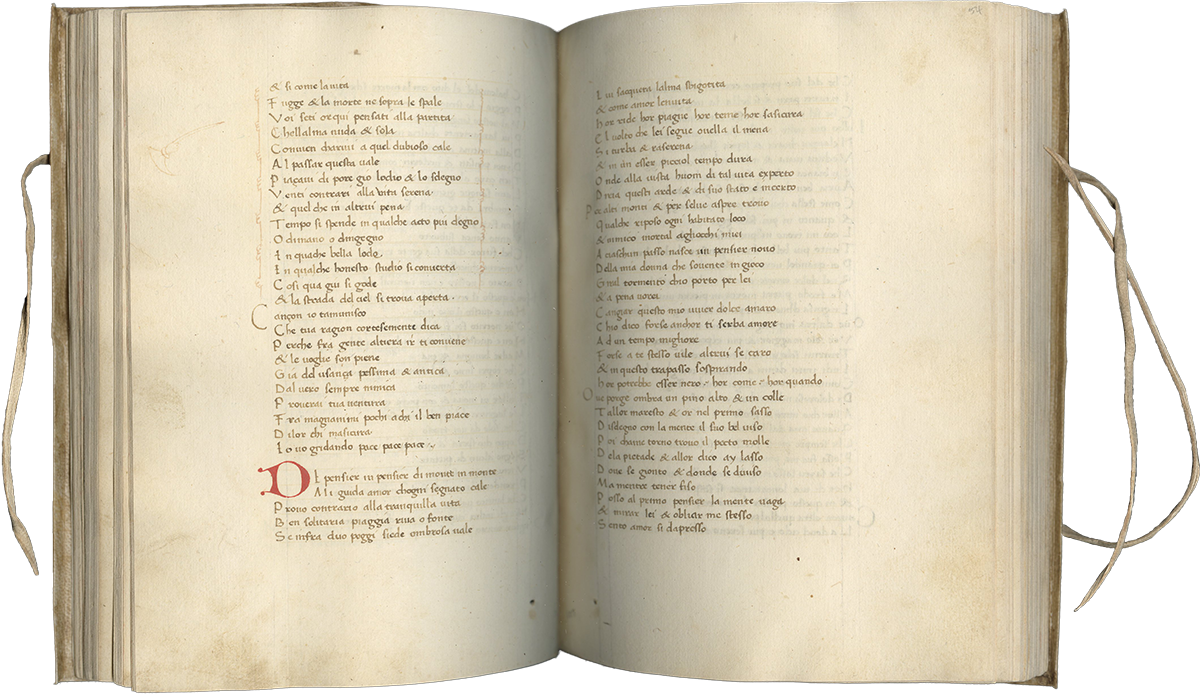 & si come la vita
Fugge & la morte ne sopra le spale
Voi seti or qui pensati alla partita
Chellalma nuda & sola
Convien charivi a quel dubioso cale
Al passar questa vale
Piaçavi di porc giu lodio & lo sdegno
Venti contrari alla vita serena
& quel che in altrui pena
Tempo si spende in qualche acto piu degno
O dimano o dingegno
In quache bella lode
In qualche honesto studio si converta
Cosi qua giu si gode
& la strada del ciel si trova aperta.
Cançon io tamunisco
Che tua ragion cortesemente dica
Perche fra gente altiera ir ti conviene
& le voglie son piene
Gia del usança pessima & antica
Dal vero sempre nimica
Proverai tua ventura
Fra magnanimi pochi achi il ben piace
Di lor chi masicura
Io vo gridando pace pace pace.
Di pensier in pensier di monte in monte
Mi guida amor chogni segnato cale
Provo contrario alla tranquilla vita
Ben solitaria piaggia riva o fonte
Se infra duo poggi siede ombrosa vale
54
Ivi sacqueta lalma sbigotita
& come amor lenvita
Hor ride hor piagne hor teme hor sasicura
El volto che lei segue ovella il mena
Si turba & raserena
& in un esser picciol tempo dura
Onde alla vista huom di tal vita experto
Diria questi arde & di suo stato e incerto
Per alti monti & per selve aspre trovo
Qualche riposo ogni habitato loco
& nimico mortal agliocchi miei
A ciaschun passo nasce un pensier novo
Della mia donna che sovente in gioco
Giral tormento chio porto per lei
& a pena vorei
Cangiar questo mio viver dolce amaro
Chio dico forse anchor ti serba amore
Ad un tempo migliore
Forse a te stesso vile altrui se caro
& in questo trapasso sospirando
Hor potrebbe esser vero hor come hor quando
Ove porge ombra un pino alto & un colle
Tallor maresto & or nel primo sasso
Disegno con la mente il suo bel viso
Poi chame torno trovo il pecto molle
Dela pietade & allor dico ay lasso
Dove se gionto & donde se diviso
Ma mentre tener fiso
Posso al primo pensier la mente vaga
& mirar lei & obliar me stesso
Sento amor si dapresso